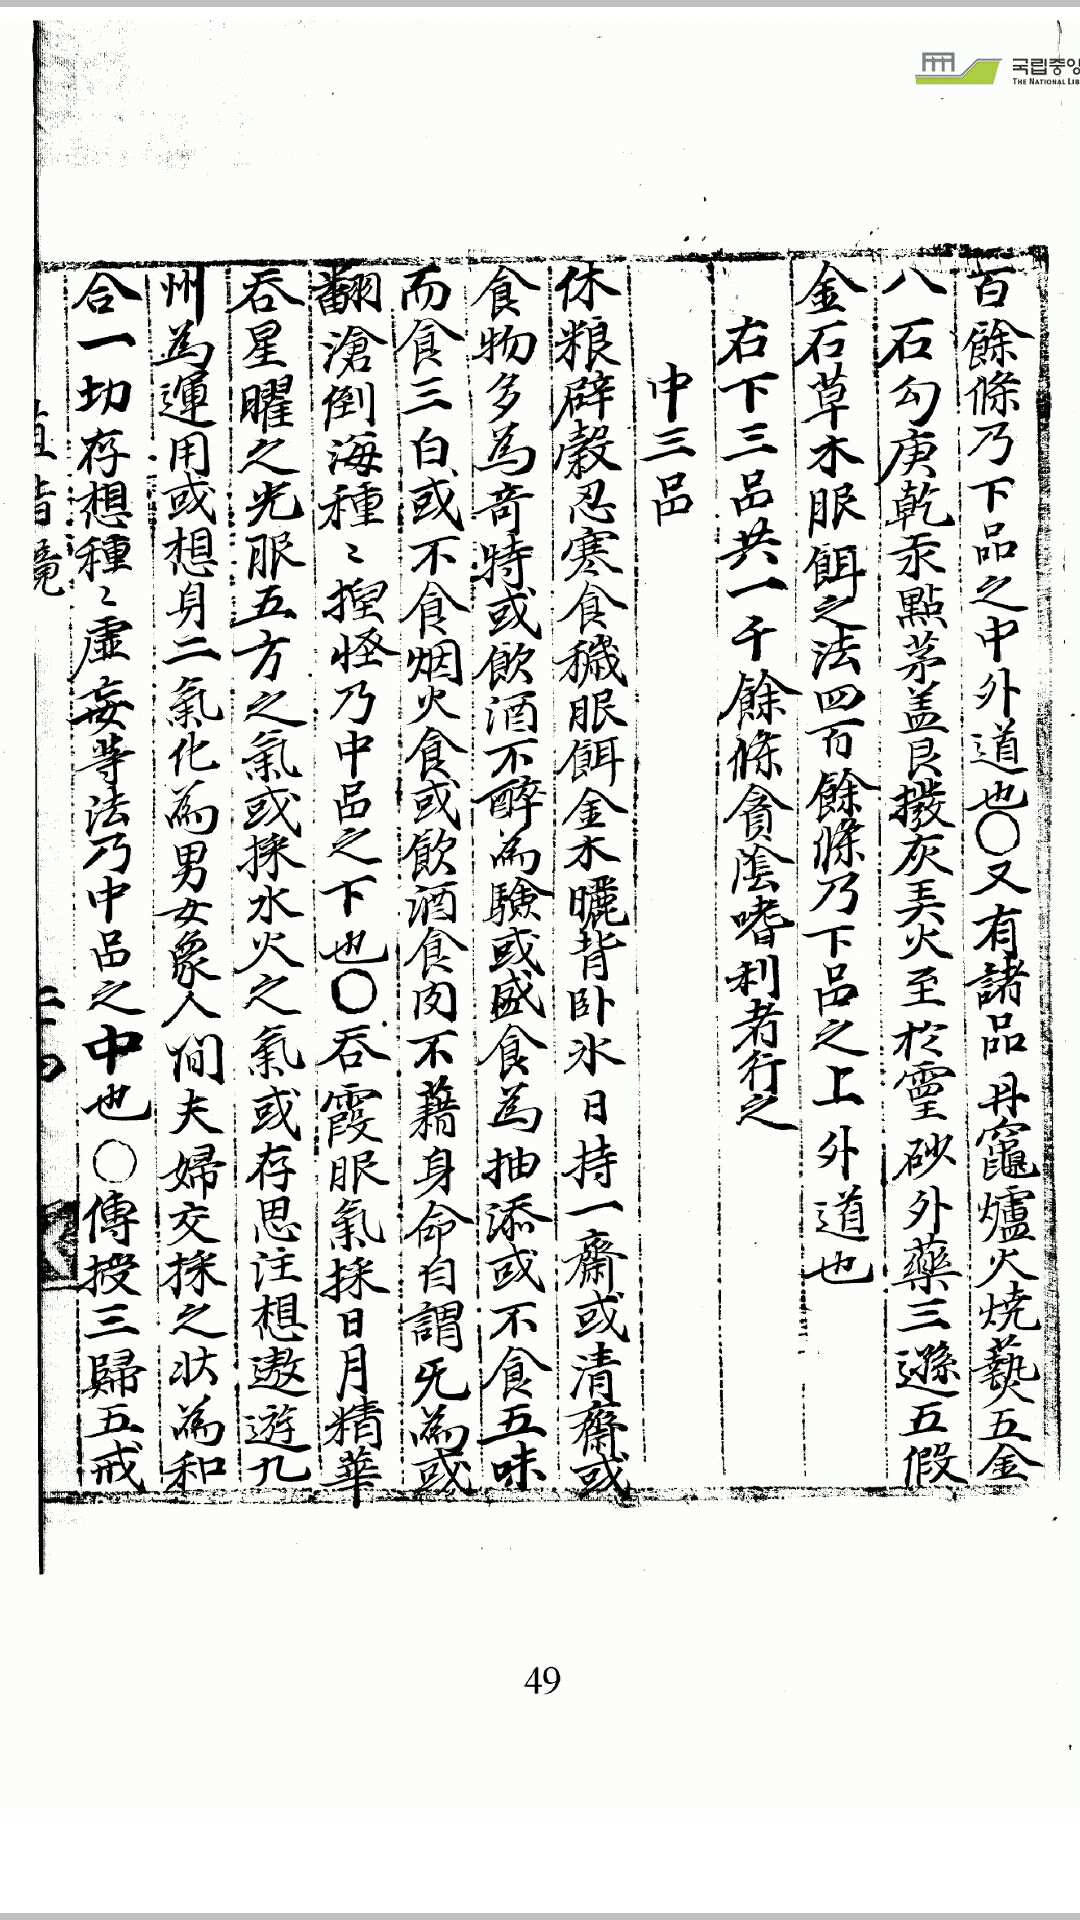 국립중앙
THE NATIONAL LIB
百餘條乃下品之中外道也〇又有諸品丹竈爐火燒爇五金
八石勾庚乾汞點茅盖艮撥灰弄火至於靈砂外藥三遜五假
金石草木服餌之法四百餘條乃下品之上外道也
右下三品共一千餘條貪婬嗜利者行之
中三品
休粮辟穀忍寒食穢服餌金木曬背卧氷日持一齋或清齋或
食物多為竒特或飲酒不醉為驗或盛食為抽添或不食五味
而食三白或不食烟火食或飲酒食肉不藉身命自謂无為或
翻滄倒海種〻揑怪乃中品之下也〇吞霞服氣採日月精華
吞星曜之光服五方之氣或採水火之氣或存思注想遨遊九
州為運用或想身二氣化為男女象人間夫婦交採之狀為和
合一切存想種〻虛妄等法乃中品之中也〇傳授三歸五戒
49